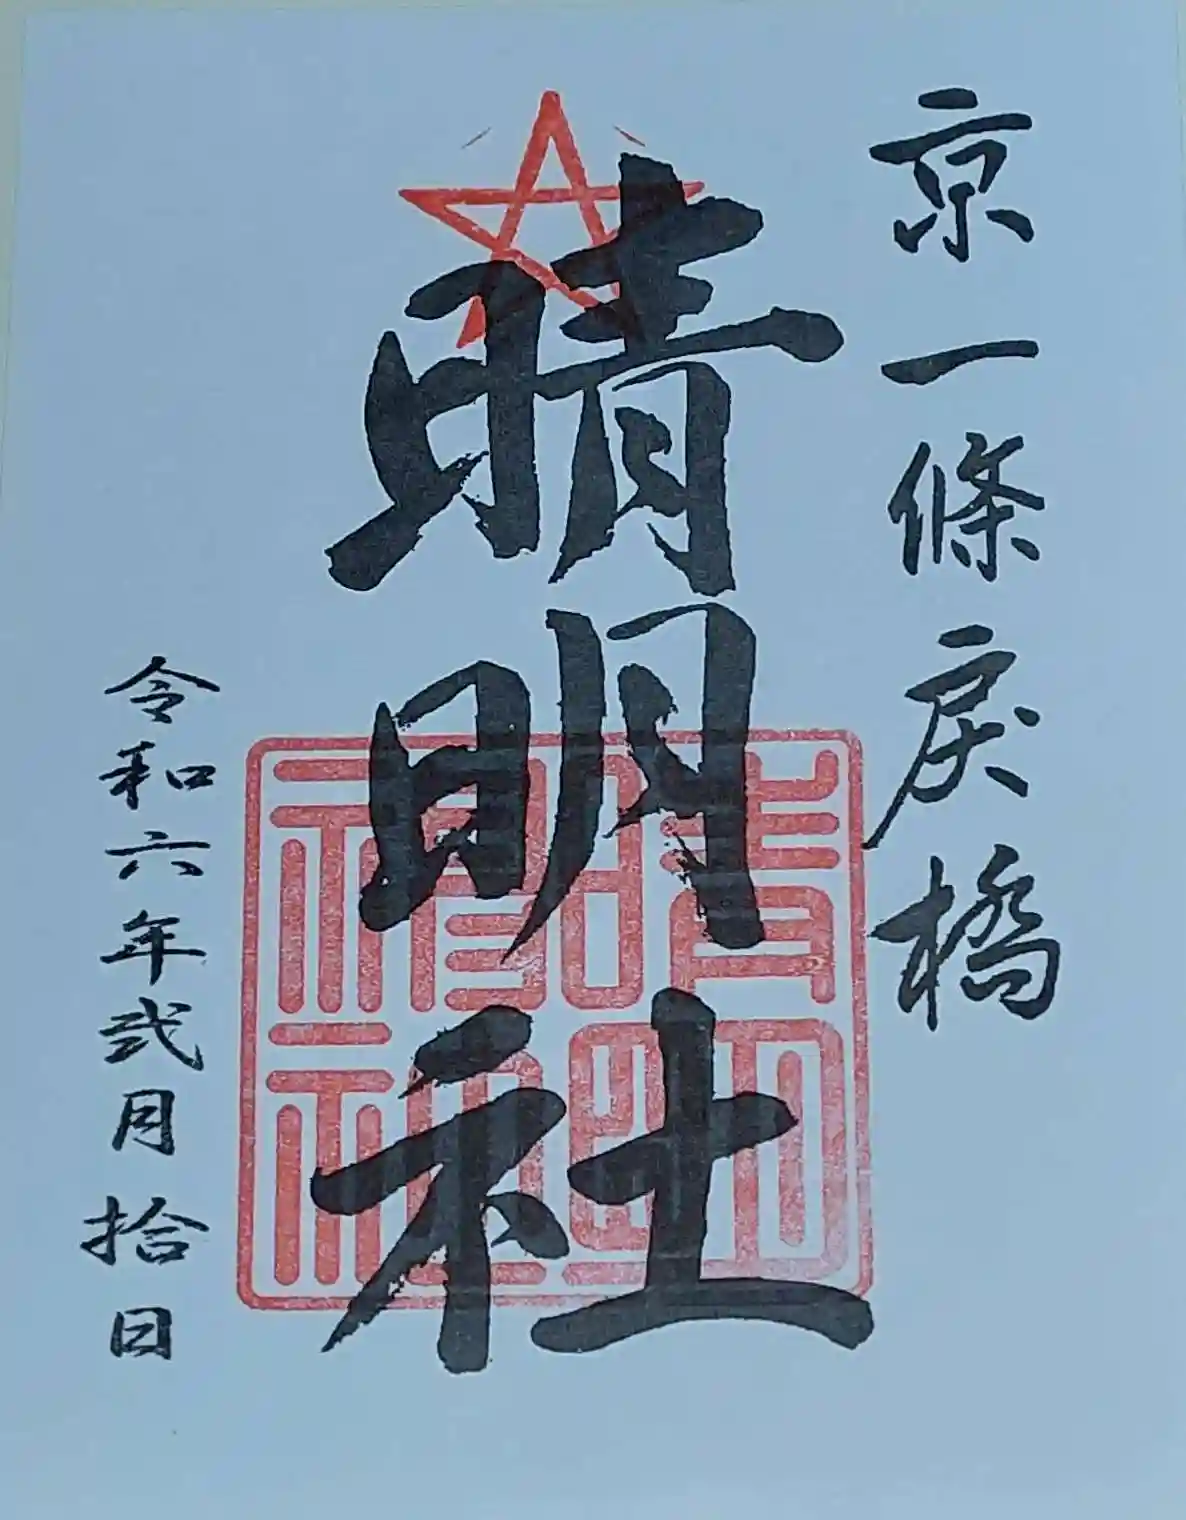 京一條戻橋
晴明社
令和六年弐月拾日